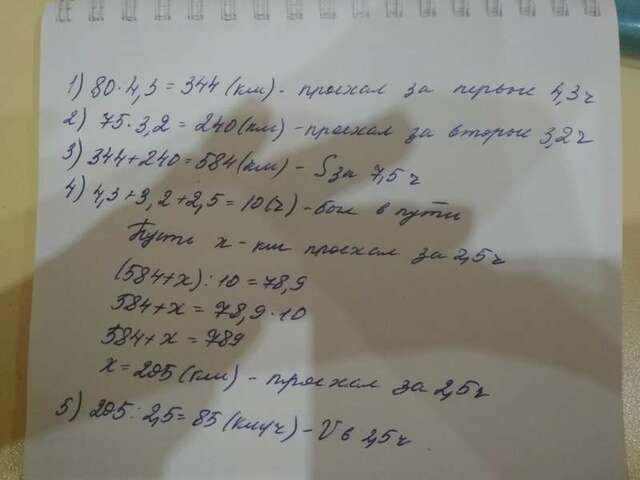 1) 80·4,3 = 344 (км) - проехал за первые 4,3 ч
2) 75·3,2 = 240 (км) - проехал за вторые 3,2 ч
3) 344+240 = 584 (км) - S за 7,5 ч
4) 4,3+3,2+2,5 = 10 (ч) - был в пути
Пусть x - км проехал за 2,5 ч
(584+x) : 10 = 78,9
584+x = 78,9·10
584+x = 789
x = 205 (км) - проехал за 2,5 ч
5) 205 : 2,5 = 85 (км/ч) - V в 2,5 ч